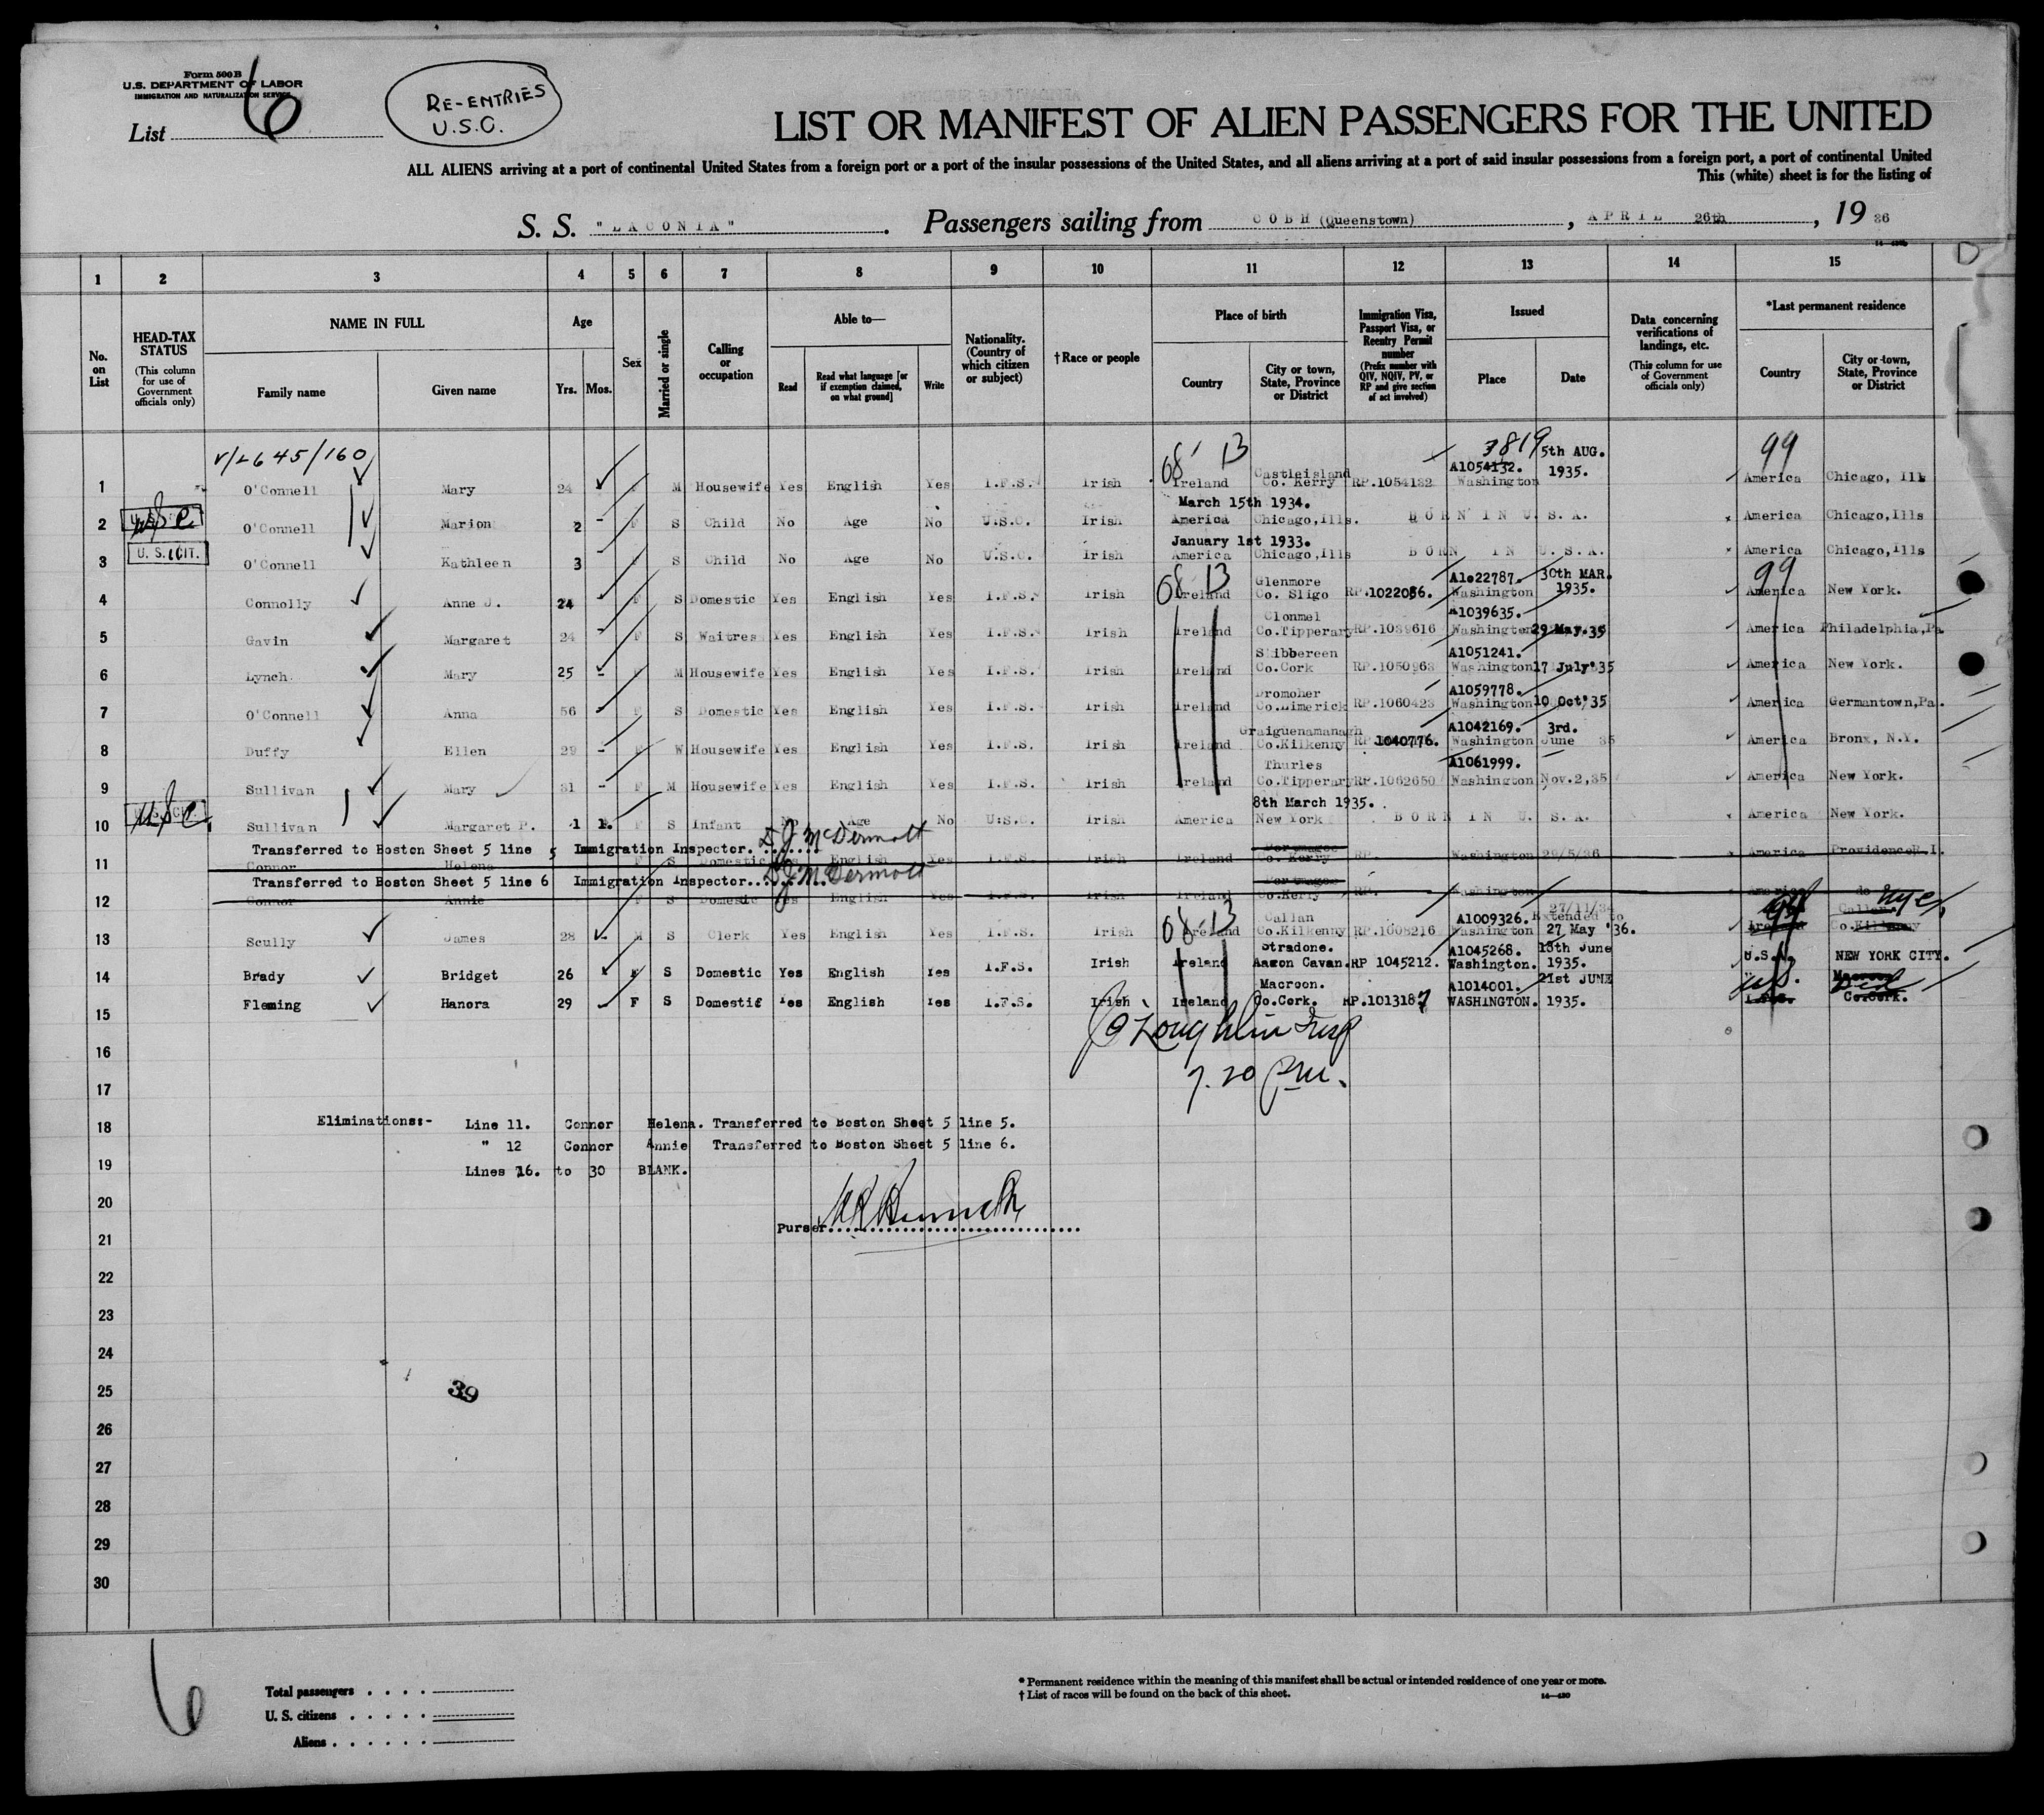 Form 500 B
U.S. DEPARTMENT OF LABOR
IMMIGRATION AND NATURALIZATION SERVICE
List 6
RE-ENTRIES
U.S.C.
LIST OR MANIFEST OF ALIEN PASSENGERS FOR THE UNITED
ALL ALIENS arriving at a port of continental United States from a foreign port or a port of the insular possessions of the United States, and all aliens arriving at a port of said insular possessions from a foreign port, a port of continental United
This (white) sheet is for the listing of
S. S. "LACONIA". Passengers sailing from COBH (Queenstown), APRIL 26th, 19 36
1 2 3 4 5 6 7 8 9 10 11 12 13 14 15
No. on List
HEAD-TAX STATUS (This column for use of Government officials only)
NAME IN FULL Family name Given name
Age Yrs. Mos.
Sex
Married or single
Calling or occupation
Able to— Read Read what language [or if exemption claimed, on what ground] Write
Nationality. (Country of which citizen or subject)
†Race or people
Place of birth Country City or town, State, Province or District
Immigration Visa, Passport Visa, or Reentry Permit number (Prefix number with QIV, NQIV, PV, or RP and give section of act involved)
Issued Place Date
Data concerning verifications of landings, etc. (This column for use of Government officials only)
*Last permanent residence Country City or town, State, Province or District
V/L645/160 08 13 3819 5th AUG. 99
Castleisland A1054132. 1935.
1 O'Connell Mary 24 F M Housewife Yes English Yes I.F.S. Irish Ireland Co. Kerry RP.1054132 Washington America Chicago, Ills
March 15th 1934.
2 USC O'Connell Marion 2 - F S Child No Age No U.S.C. Irish America Chicago,Ills. BORN IN U.S.A. America Chicago,Ills
U. S. CIT. January 1st 1933.
3 O'Connell Kathleen 3 F S Child No Age No U.S.C. Irish America Chicago,Ills BORN IN U.S.A. America Chicago,Ills
08 13 Glenmore A1022787. 30th MAR. 99
4 Connolly Anne J. 24 F S Domestic Yes English Yes I.F.S. Irish Ireland Co. Sligo RP.1022086. Washington 1935. America New York.
Clonmel A1039635.
5 Gavin Margaret 24 F S Waitres Yes English Yes I.F.S. Irish Ireland Co.Tipperary RP.1039616 Washington 29 May.35 America Philadelphia,Pa
Skibbereen A1051241.
6 Lynch Mary 25 - F M Housewife Yes English Yes I.F.S. Irish Ireland Co.Cork RP.1050963 Washington 17 July'35 America New York.
Dromoher A1059778.
7 O'Connell Anna 56 F S Domestic Yes English Yes I.F.S. Irish Ireland Co.Limerick RP.1060423 Washington 10 Oct'35 America Germantown,Pa.
Graiguenamanagh A1042169. 3rd.
8 Duffy Ellen 29 - F W Housewife Yes English Yes I.F.S. Irish Ireland Co.Kilkenny RP 1040776. Washington June 35 America Bronx, N.Y.
Thurles A1061999.
9 Sullivan Mary 31 - F M Housewife Yes English Yes I.F.S. Irish Ireland Co.Tipperary RP.1062650 Washington Nov.2,35 America New York.
8th March 1935.
10 USC Sullivan Margaret P. 1 1. F S Infant No Age No U.S.C. Irish America New York BORN IN U.S.A. America New York.
Transferred to Boston Sheet 5 line 5 Immigration Inspector. D J McDermott
11 Connor Helena F S Domestic Yes English Yes I.F.S. Irish Ireland Co. Kerry RP. Washington 29/5/36 America Providence R.I.
Transferred to Boston Sheet 5 line 6 Immigration Inspector. D J McDermott
12 Connor Annie F S Domestic Yes English Yes I.F.S. Irish Ireland Co.Kerry RP. Washington America do
08-13 Callan A1009326. Extended to 99 Callan NYC
13 Scully James 28 M S Clerk Yes English Yes I.F.S. Irish Ireland Co.Kilkenny RP.1008216 Washington 27 May '36. Ireland Co.Kilkenny
Stradone. A1045268. 13th June
14 Brady Bridget 26 F S Domestic Yes English Yes I.F.S. Irish Ireland Cavan. RP 1045212. Washington. 1935. U.S.A. NEW YORK CITY.
Macroon. A1014001. 21st JUNE US. Macroon
15 Fleming Hanora 29 F S Domestic Yes English Yes I.F.S. Irish Ireland Co.Cork. RP.1013187 WASHINGTON. 1935. I.F.S. Co.Cork.
J O'Loughlin Insp
16
7.20 P.M.
17
18 Eliminations:- Line 11. Connor Helena. Transferred to Boston Sheet 5 line 5.
" 12 Connor Annie Transferred to Boston Sheet 5 line 6.
19 Lines 16. to 30 BLANK.
20
Purser
21
22
23
24
25 39
26
27
28
29
30
6
Total passengers
U. S. citizens
Aliens
* Permanent residence within the meaning of this manifest shall be actual or intended residence of one year or more.
† List of races will be found on the back of this sheet.
14—430